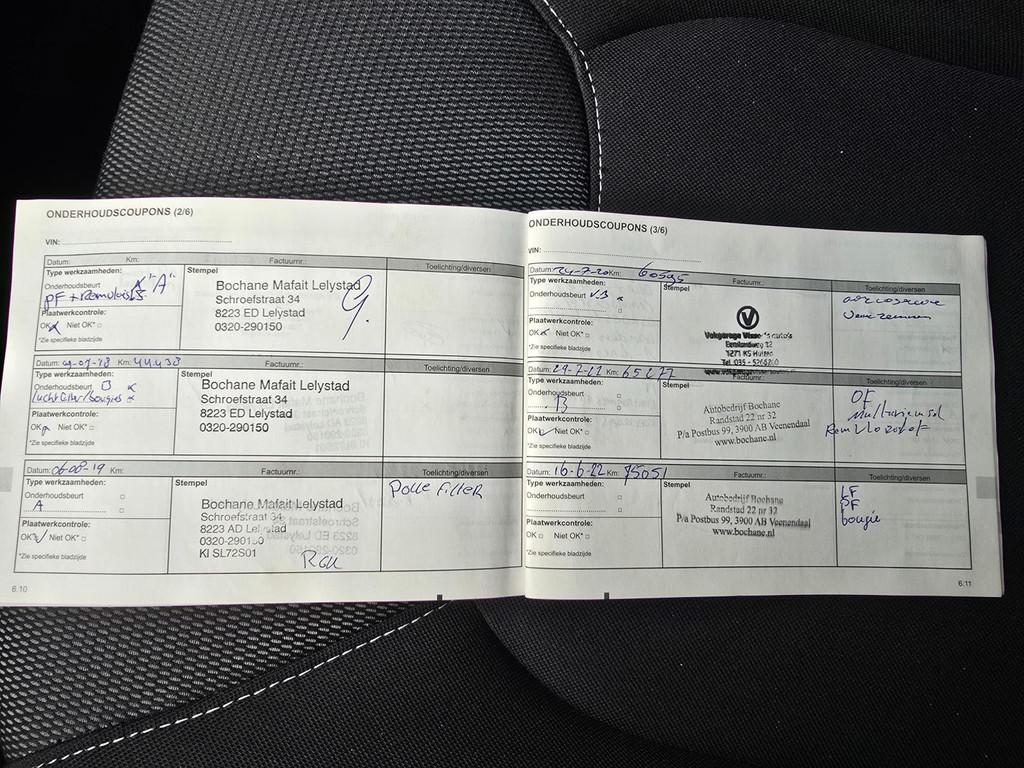 ONDERHOUDSCOUPONS (2/6)
VIN:
Datum: Km: Factuurnr.: Toelichting/diversen
Type werkzaamheden:
Onderhoudsbeurt "A"
PF + Remvloeist
Plaatwerkcontrole:
OK Niet OK*
*Zie specifieke bladzijde
Stempel
Bochane Mafait Lelystad
Schroefstraat 34
8223 ED Lelystad
0320-290150
Datum: -07-18 Km: 44438 Factuurnr.: Toelichting/diversen
Type werkzaamheden:
Onderhoudsbeurt B
luchtfilter/bougies
Plaatwerkcontrole:
OK Niet OK*
*Zie specifieke bladzijde
Stempel
Bochane Mafait Lelystad
Schroefstraat 34
8223 ED Lelystad
0320-290150
Datum: 06-08-19 Km: Factuurnr.: Toelichting/diversen
Type werkzaamheden:
Onderhoudsbeurt
A
Plaatwerkcontrole:
OK Niet OK*
*Zie specifieke bladzijde
Stempel
Bochane Mafait Lelystad
Schroefstraat 34
8223 AD Lelystad
0320-290150
KI SL72S01
Polle Filter
6.10
ONDERHOUDSCOUPONS (3/6)
VIN:
Datum: 24-7-20 Km: 60595 Factuurnr.: Toelichting/diversen
Type werkzaamheden:
Onderhoudsbeurt
Plaatwerkcontrole:
OK Niet OK*
*Zie specifieke bladzijde
Stempel
Vakgarage Visser's auto's
Eemlandweg 12
1271 KS Huizen
Tel. 035 - 5266260
Datum: 29-7-21 Km: 65277 Factuurnr.: Toelichting/diversen
Type werkzaamheden:
Onderhoudsbeurt
B
Plaatwerkcontrole:
OK Niet OK*
*Zie specifieke bladzijde
Stempel
Autobedrijf Bochane
Randstad 22 nr 32
P/a Postbus 99, 3900 AB Veenendaal
www.bochane.nl
OF
Multiriem
Remvloeistof
Datum: 16-6-22 Km: 75051 Factuurnr.: Toelichting/diversen
Type werkzaamheden:
Onderhoudsbeurt
Plaatwerkcontrole:
OK Niet OK*
*Zie specifieke bladzijde
Stempel
Autobedrijf Bochane
Randstad 22 nr 32
P/a Postbus 99, 3900 AB Veenendaal
www.bochane.nl
LF
PF
bougie
6.11